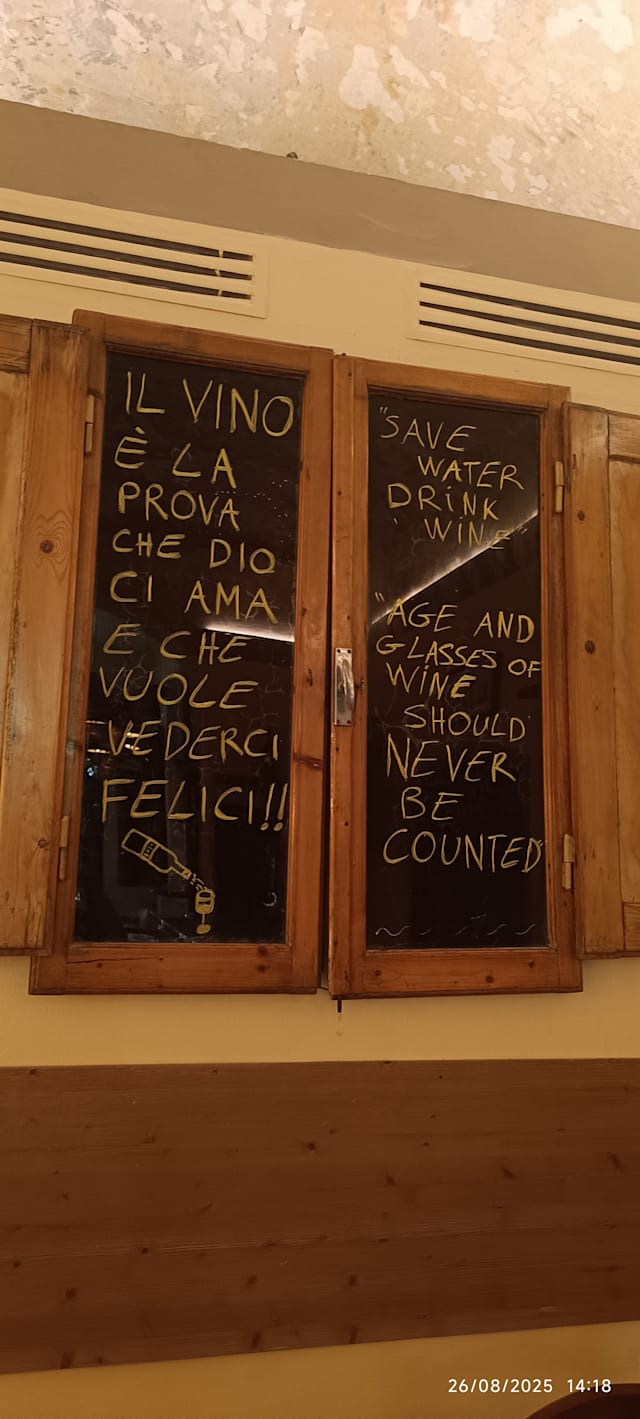 IL VINO
È LA
PROVA
CHE DIO
CI AMA
E CHE
VUOLE
VEDERCI
FELICI!!
"SAVE
WATER
DRINK
WINE"
"AGE AND
GLASSES OF
WINE
SHOULD
NEVER
BE
COUNTED"
26/08/2025 14:18